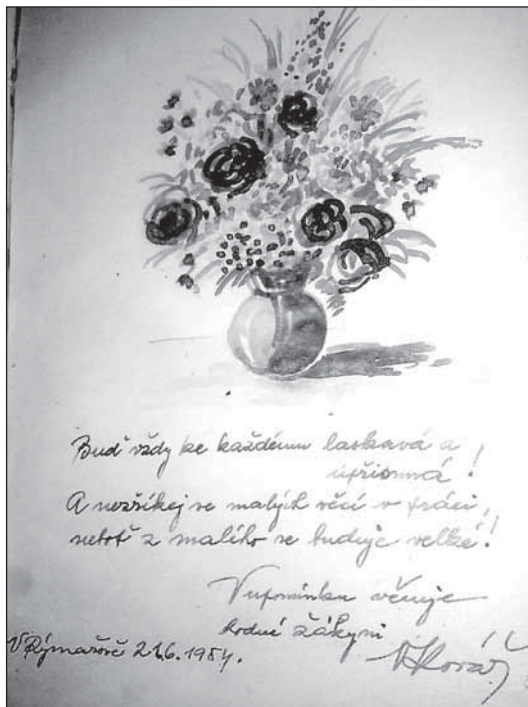 Buď vždy ke každému laskavá a
upřímná!
A nezříkej se malých věcí v práci,
neboť z malého se buduje velké!
Vzpomínku věnuje
hodné žákyni
V Rýmařově 1984.